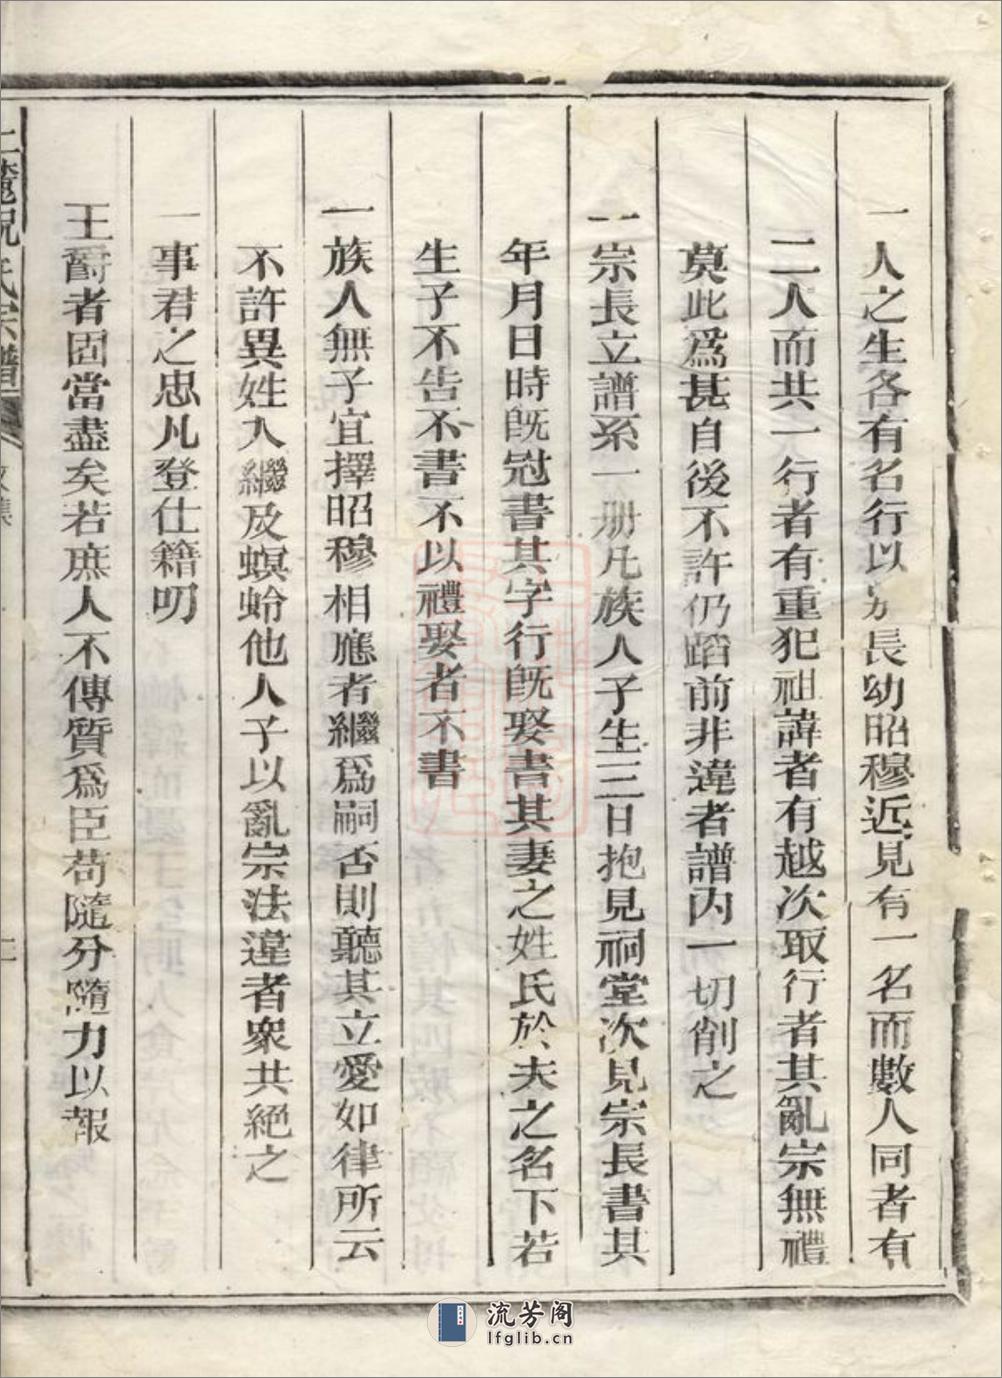 一人之生各有名行以別長幼昭穆近見有一名而數人同者有
二人而共一行者有重犯祖諱者有越次取行者其亂宗無禮
莫此爲甚自後不許仍蹈前非違者譜內一切削之
一宗長立譜系一册凡族人子生三日抱見祠堂次見宗長書其
年月日時旣冠書其字行旣娶書其妻之姓氏於夫之名下若
生子不告不書不以禮娶者不書
一族人無子宜擇昭穆相應者繼爲嗣否則聽其立愛如律所云
不許異姓入繼及螟蛉他人子以亂宗法違者衆共絕之
一事君之忠凡登仕籍叨
王爵者固當盡矣若庶人不傳質爲臣苟隨分隨力以報
氏宗譜
流芳阁
lfglib.cn